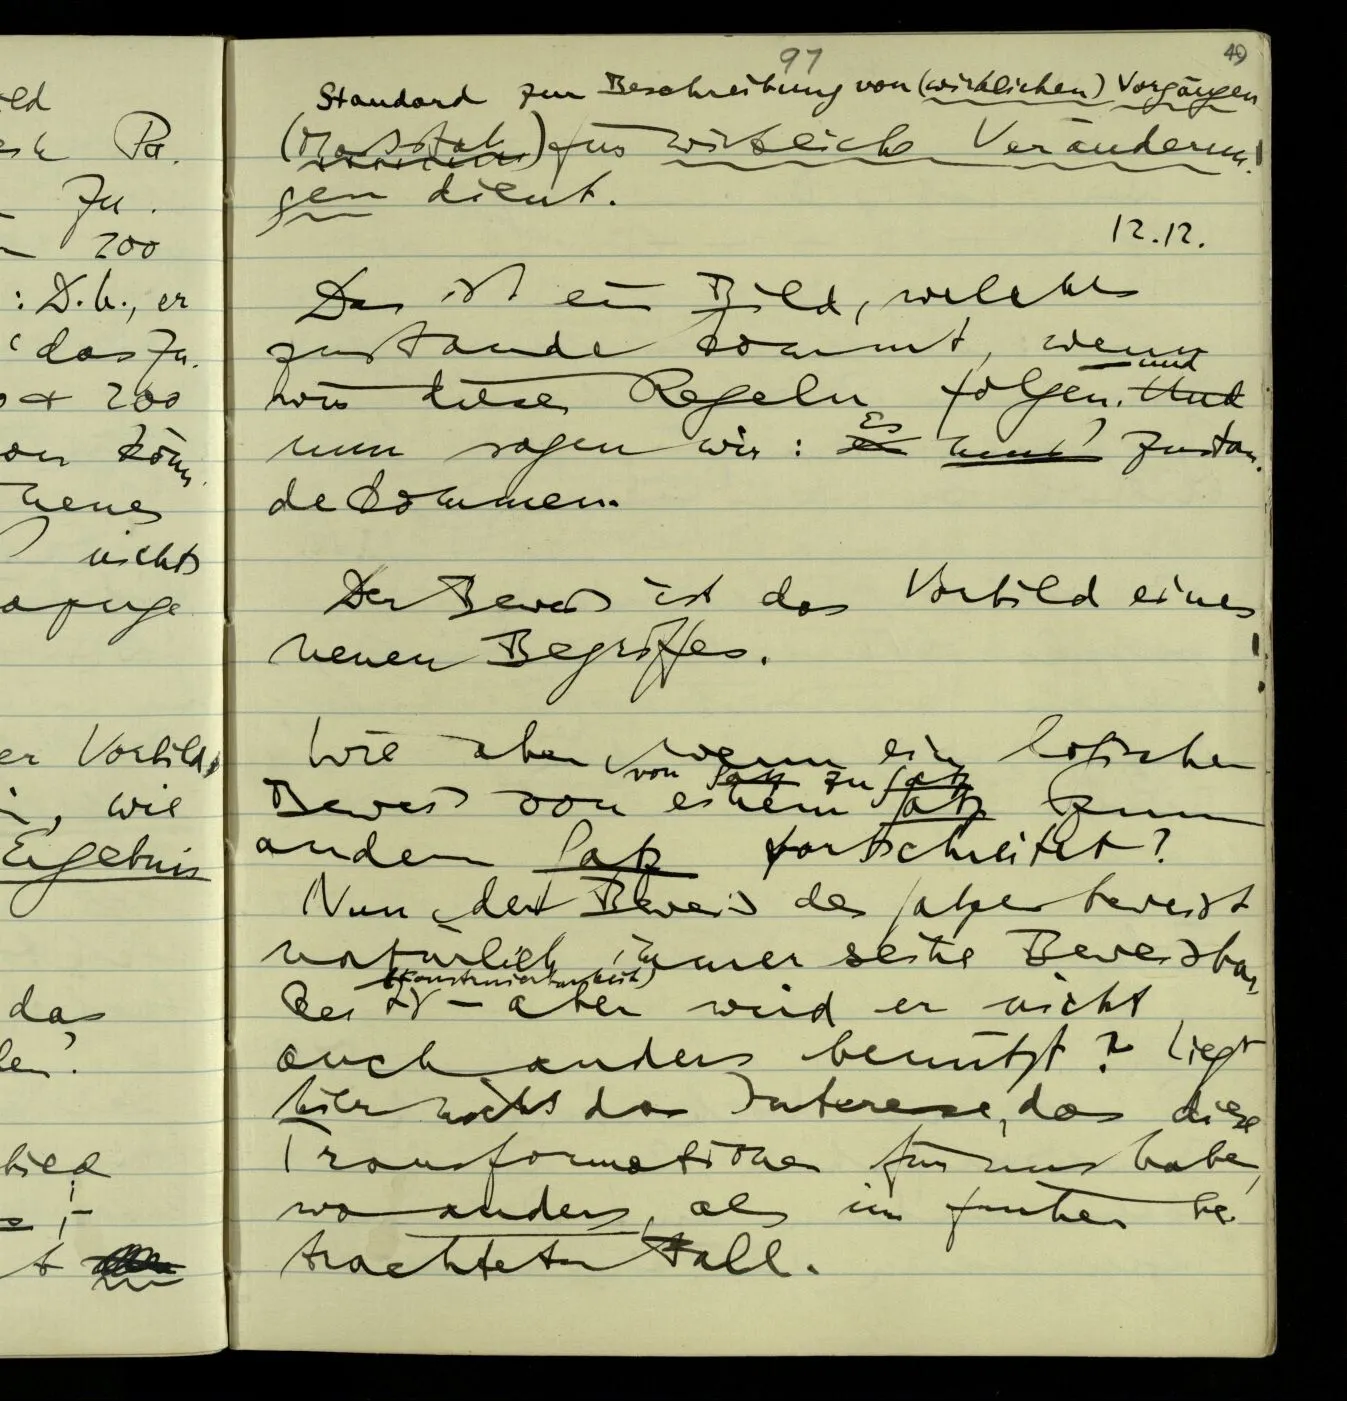 ild
Pa.
Zu.
200
: D.h., er
das Zu.
+ 200
kön
neues
nichts
er Vorbild,
, wie
Ergebnis
da
bild
97
49
Standard zur Beschreibung von (wirklichen) Vorgängen
(Masstab) für wirkliche Veränderun-
gen dient.
12.12.
Das ist ein Bild, welches
zustande kommt, wenn
und
wir diesen Regeln folgen. Und
Es
nun sagen wir: es muß zustan-
de kommen.
Der Beweis ist das Vorbild eines
neuen Begriffes.
Wie aber wenn ein logischer
von Satz zu Satz
Beweis von einem Satz zum
andern Satz fortschreitet?
Nun, der Beweis des Satzes beweist
natürlich immer seine Beweisbar-
(Konstruierbarkeit)
keit – aber wird er nicht
auch anders benützt? Liegt
hier nicht das Interesse, das diese
Transformationen für uns haben,
wo anders, als im früher be-
trachteten Fall.